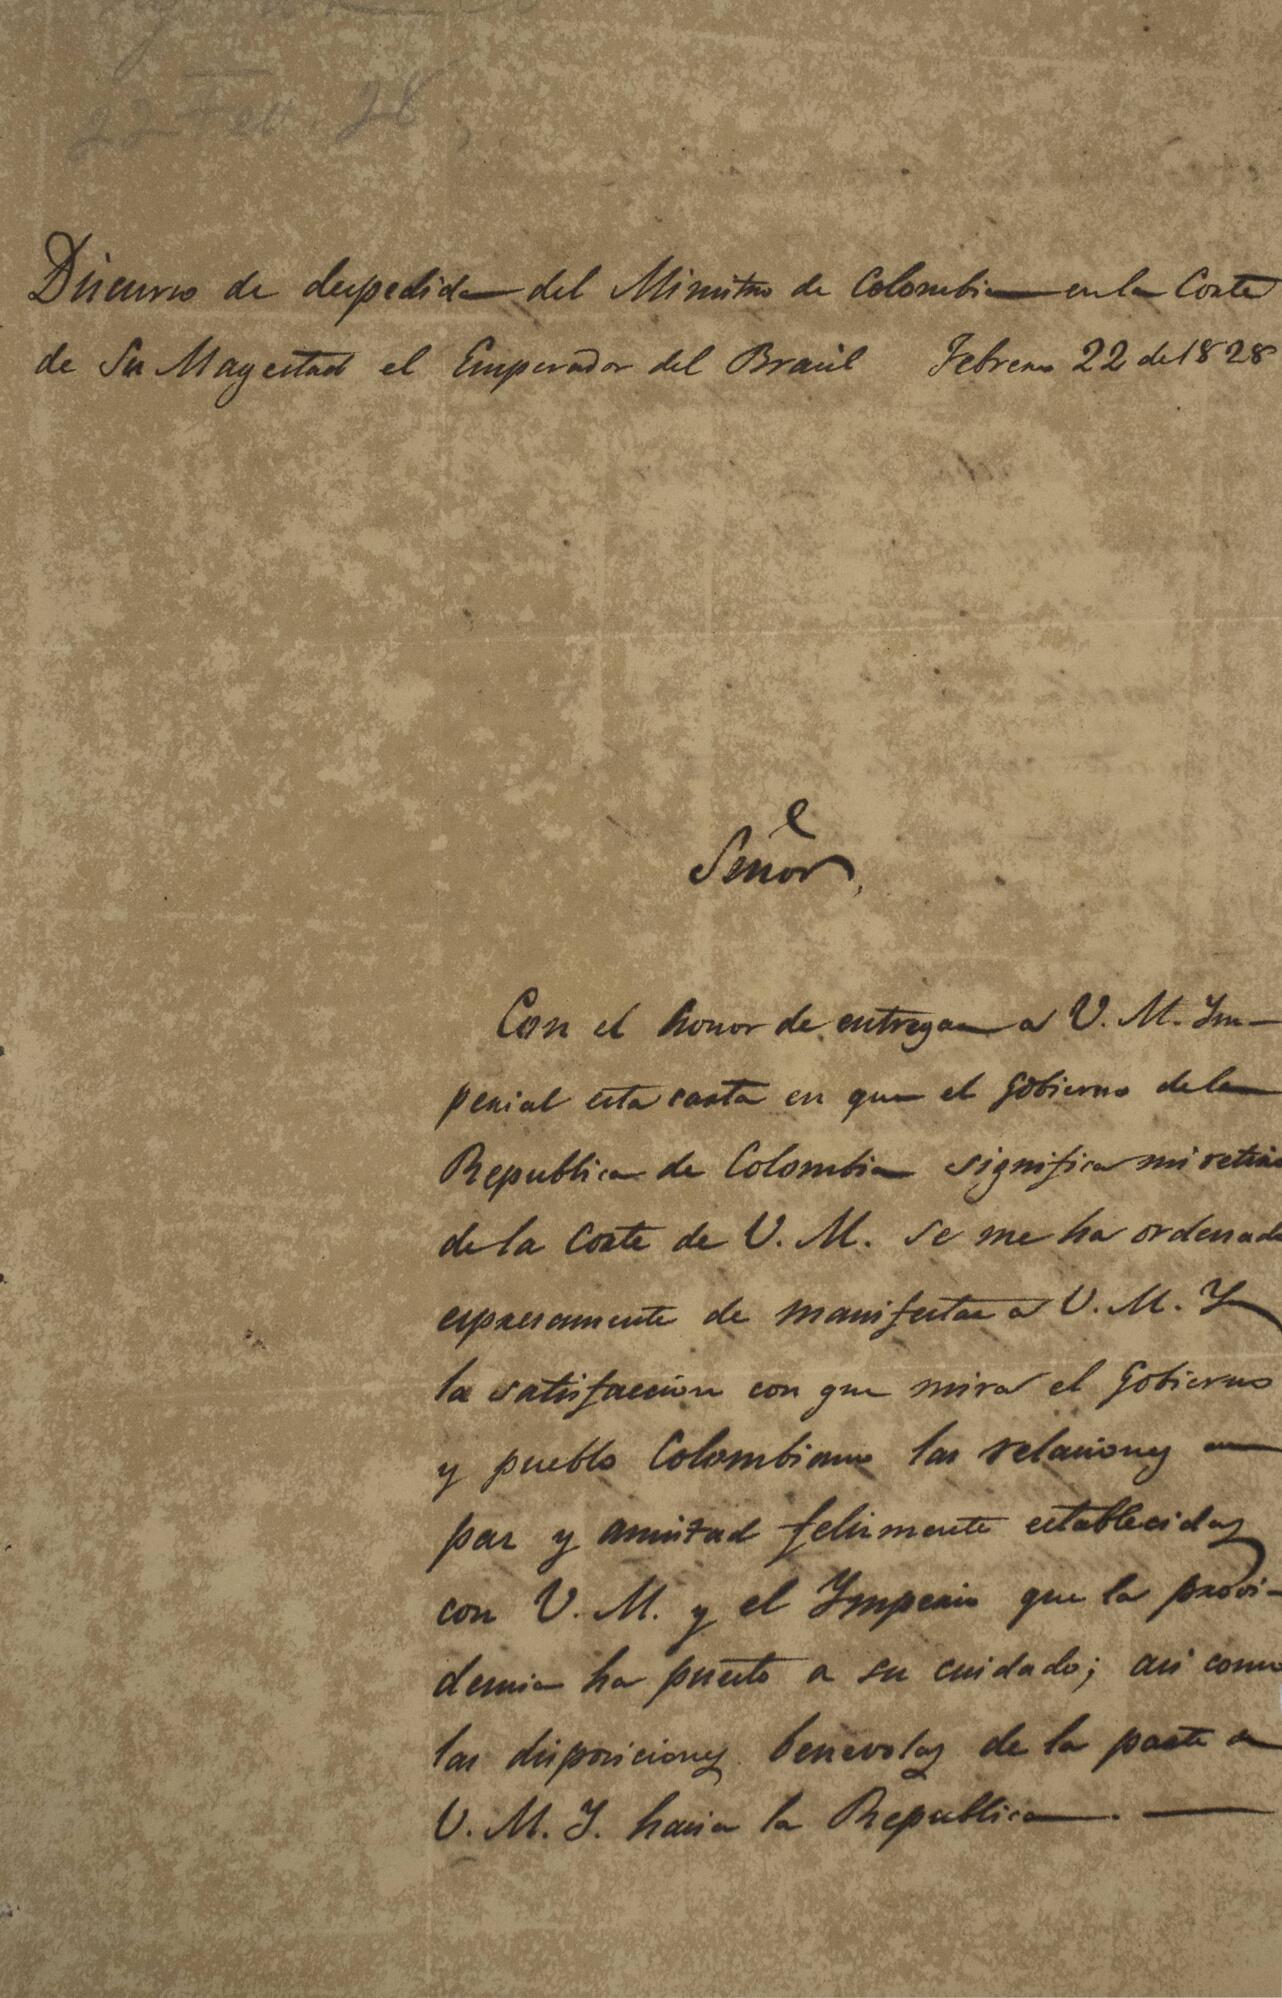 22 Fev. 28
Discurso de despedida del Ministro de Colombia en la Corte
de Su Magestad el Emperador del Brasil Febrero 22 de 1828
Señor,
Con el honor de entregar a V. M. Ym-
perial esta carta en que el Gobierno de la
Republica de Colombia significa mi retiro
de la Corte de V. M. se me ha ordenado
espresamente de manifestar a V. M. Y
la satisfaccion con que mira el Gobierno
y pueblo Colombiano las relaciones en
paz y amistad felizmente establecidas
con V. M. y el Ymperio que la provi-
dencia ha puesto a su cuidado; asi como
las disposiciones benevolas de la parte de
V. M. Y. hacia la Republica.